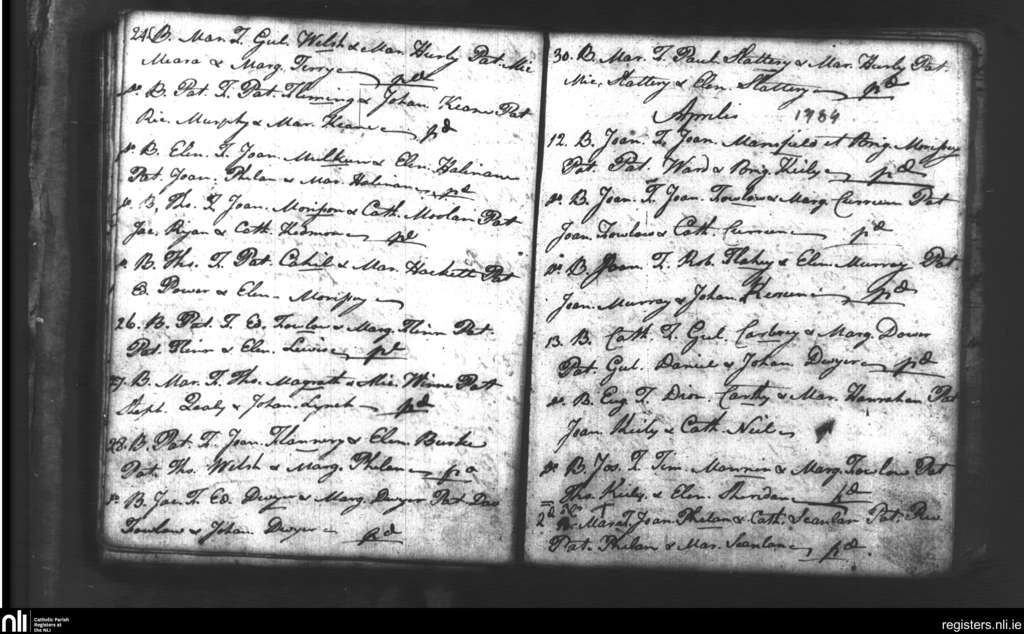 24 B. Mar. F. Gul. Welsh & Mar. Hurly Pat. Mic
Meara & Marg. Terry pd
do B. Pat. F. Pat. Fleming & Johan. Keane Pat
Ric. Murphy & Mar. Keane pd
do B. Elen. F. Joan. & Elen. Halinane
Pat. Joan. Phelan & Mar. Halinane pd
do B. Tho. F. Joan. Morison & Cath. Moolan Pat
Jac. Ryan & Cath. pd
do B. Tho. F. Pat. Cahil & Mar. Hackett Pat
E. Power & Elen.
26. B. Pat. F. Ed. Fowlow & Marg. Pat.
Pat. & Elen. Lewis pd
27. B. Mar. F. Tho. Magrath & Mic. Winne Pat
Steph. Qealy & Johan. Lynch pd
28. B. Pat. F. Joan. Flannery & Elen. Burke
Pat. Tho. Welsh & Marg. Phelan pd
do B. Jac. F. Ed. Dwyer & Marg. Dwyer Pat. Dav
Fowlow & Johan. Dwyer pd
30. B. Mar. F. Paul. Slattery & Mar. Hurly Pat.
Mic. Slattery & Elen. Slattery pd
Aprilis 1784
12. B. Joan. F. Joan. Mansfield et Brig.
Pat. Pat. Ward & Brig. Kiely pd
do B. Joan. F. Joan. Fowlow & Marg. Curreen Pat
Joan. Fowlow & Cath. Curreen pd
do B. Joan. F. Rob. Flahey & Elen. Murray Pat.
Joan. Murray & Johan. pd
13. B. Cath. F. Gul. Carbrey & Marg. Dower
Pat. Gul. Daniel & Johan. Dwyer pd
do B. Eug. F. Dion. Carthy & Mar. Hanrahan Pat
Joan. Kiely & Cath. Neil
do B. Jos. F. Tim. & Marg. Fowlow Pat
Tho. Kiely & Elen. Sheridan pd
2d Mar. F. Joan. Phelan & Cath. Scanlan Pat.
Pat. Phelan & Mar. Scanlan pd
nli
Catholic Parish
Registers at
the NLI
registers.nli.ie